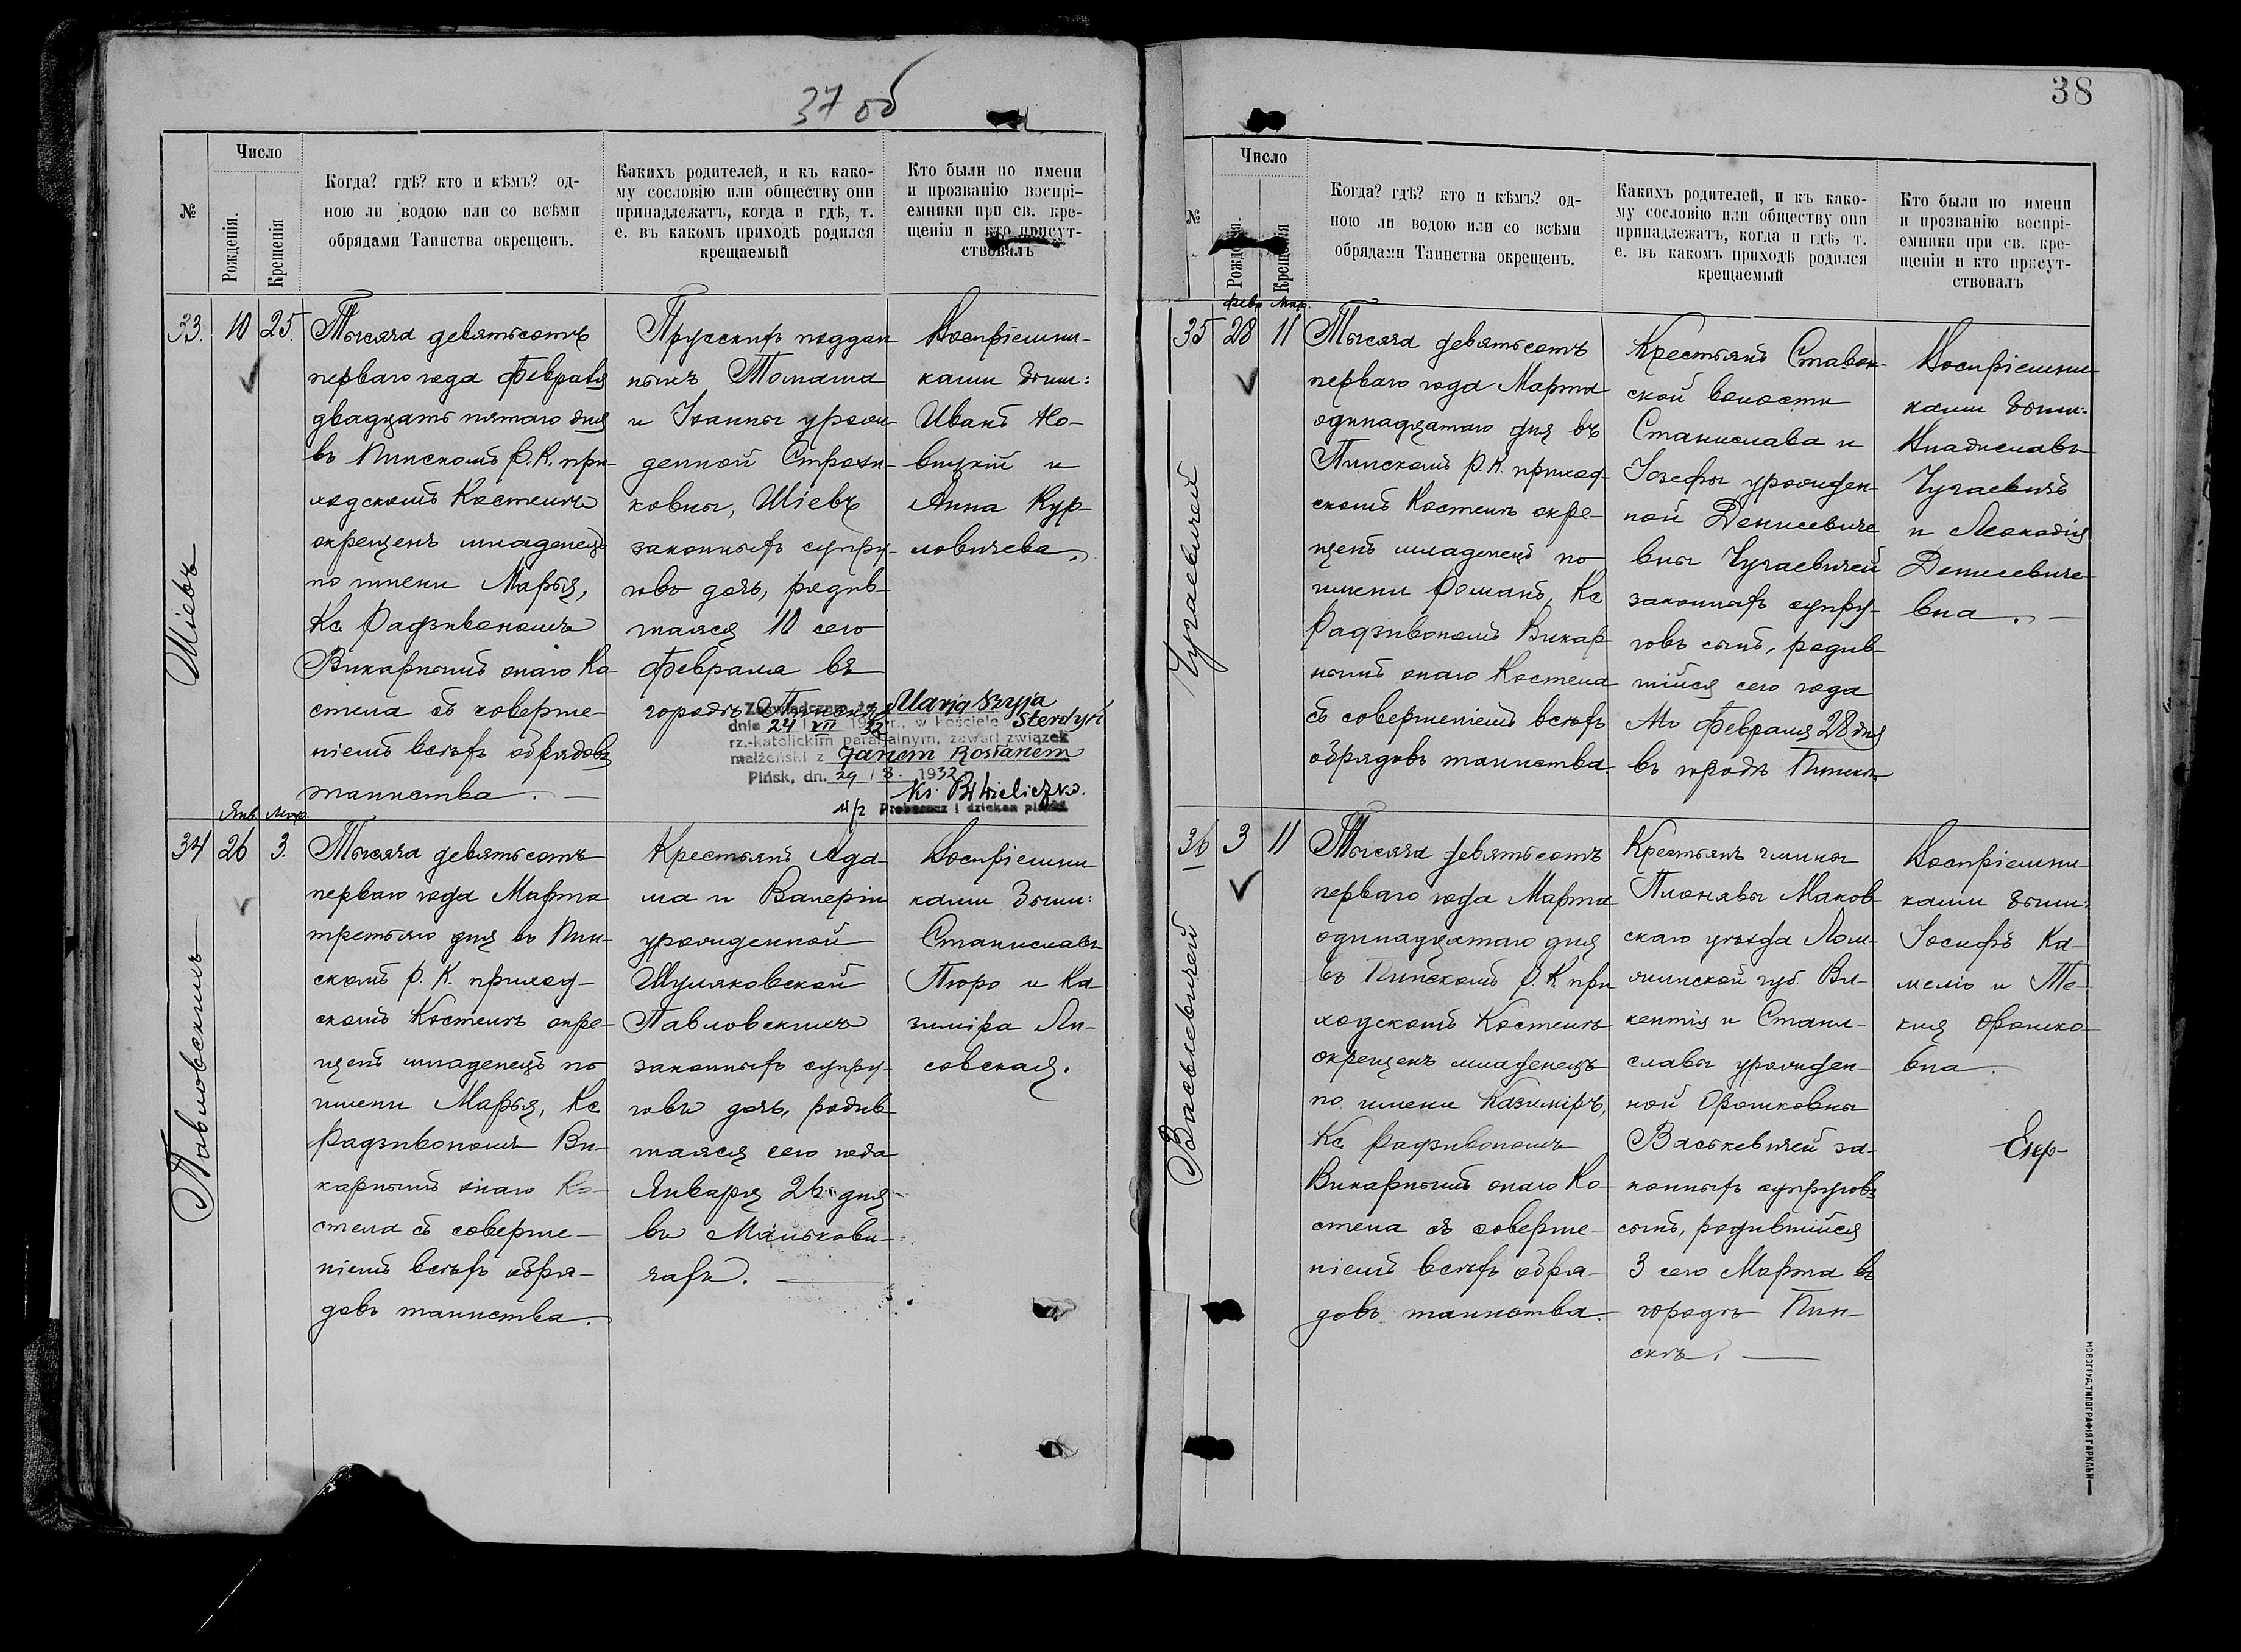 37 об
№
Число
Рожденія.
Крещенія
Когда? гдѣ? кто и кѣмъ? од-
ною ли водою или со всѣми
обрядами Таинства окрещенъ.
Каких родителей, и къ како-
му сословію или обществу они
принадлежатъ, когда и гдѣ, т.
е. въ какомъ приходѣ родился
крещаемый
Кто были по имени
и прозванію воспрі-
емники при св. кре-
щеніи и кто присут-
ствовалъ
Шіевъ
33. 10 25.
Тысяча девятьсотъ
перваго года Февраля
двадцать пятаго дня
въ Пинскомъ Р. К. при-
ходскомъ Костелѣ
окрещенъ младенецъ
по имени Марья,
Кс. Радзивономъ
Викарнымъ онаго Ко-
стела съ соверше-
ніемъ всѣхъ обрядовъ
таинства. —
Прусскихъ поддан
ныхъ Томаша
и Іоанны урож-
денной
ковны, Шіевъ
законныхъ супру-
говъ дочь, родив-
шаяся 10 сего
Февраля въ
городѣ Пинскѣ
Воспріемни-
ками были:
Иванъ Но-
вицкій и
Анна Кур-
ловичева.
Zaświadczam, że Marja Szyja
dnia 24 VII 1932 r., w kościele Sterdyń
rz.-katolickim parafjalnym, zawarł związek
małżeński z Janem Rosłanem
Pińsk, dn. 29 / 8. 1932
Ks. Wieliczko
Proboszcz i dziekan piński
Павловскихъ
Янв. Мар.
34 26 3.
Тысяча девятьсотъ
перваго года Марта
третьяго дня въ Пин-
скомъ Р. К. приход-
скомъ Костелѣ окре-
щенъ младенецъ по
имени Марья, Кс
Радзивономъ Ви-
карнымъ онаго Ко-
стела съ соверше-
ніемъ всѣхъ обря-
довъ таинства.
Крестьянъ Ада-
ма и Валеріи
урожденной
Шумяковской
Павловскихъ
законныхъ супру-
говъ дочь, родив
шаяся сего года
Января 26 дня
въ Манькови-
чахъ.
Воспріемни
ками были:
Станиславъ
Пюро и Ка-
зиміра Ли-
совская.
38
№
Число
Рожденія.
Крещенія
Когда? гдѣ? кто и кѣмъ? од-
ною ли водою или со всѣми
обрядами Таинства окрещенъ.
Какихъ родителей, и къ како-
му сословію или обществу они
принадлежатъ, когда и гдѣ, т.
е. въ какомъ приходѣ родился
крещаемый
Кто были по имени
и прозванію воспрі-
емники при св. кре-
щеніи и кто присут-
ствовалъ
Чугаевичей
Февр Мар.
35 28 11
Тысяча девятьсотъ
перваго года Марта
одинадцатаго дня въ
Пинскомъ Р. К. приход-
скомъ Костелѣ окре-
щенъ младенецъ по
имени Романъ, Кс
Радзивономъ Викар-
нымъ онаго Костела
съ совершеніемъ всѣхъ
обрядовъ таинства.
Крестьянъ Ставок-
ской волости
Станислава и
Іозефы урожден-
ной Денисевиче
вны Чугаевичей
законныхъ супру-
говъ сынъ, родив-
шійся сего года
М. Февраля 28 дня
въ городѣ Пинскѣ
Воспріемни-
ками были:
Владиславъ
Чугаевичъ
и Леокадія
Денисевиче-
вна. —
Васькевичей
36 3 11
Тысяча девятьсотъ
перваго года Марта
одинадцатаго дня
въ Пинскомъ Р. К. при
ходскомъ Костелѣ
окрещенъ младенецъ
по имени Казиміръ,
Кс. Радзивономъ
Викарнымъ онаго Ко-
стела съ соверше-
ніемъ всѣхъ обря-
довъ таинства.
Крестьянъ гмины
Плонявы Маков
скаго уѣзда Лом-
жинской губ. Ви-
кентія и Стани-
славы урожден-
ной Орошковны
Васькевичей за-
конныхъ супруговъ
сынъ, родившійся
3 сего Марта въ
городѣ Пин-
скѣ. —
Воспріемни-
ками были:
Іосифъ Ка-
и Те-
кля Орошко-
вна.
НОВОГРУД. ТИПОГРАФІЯ ГАРКАВИ